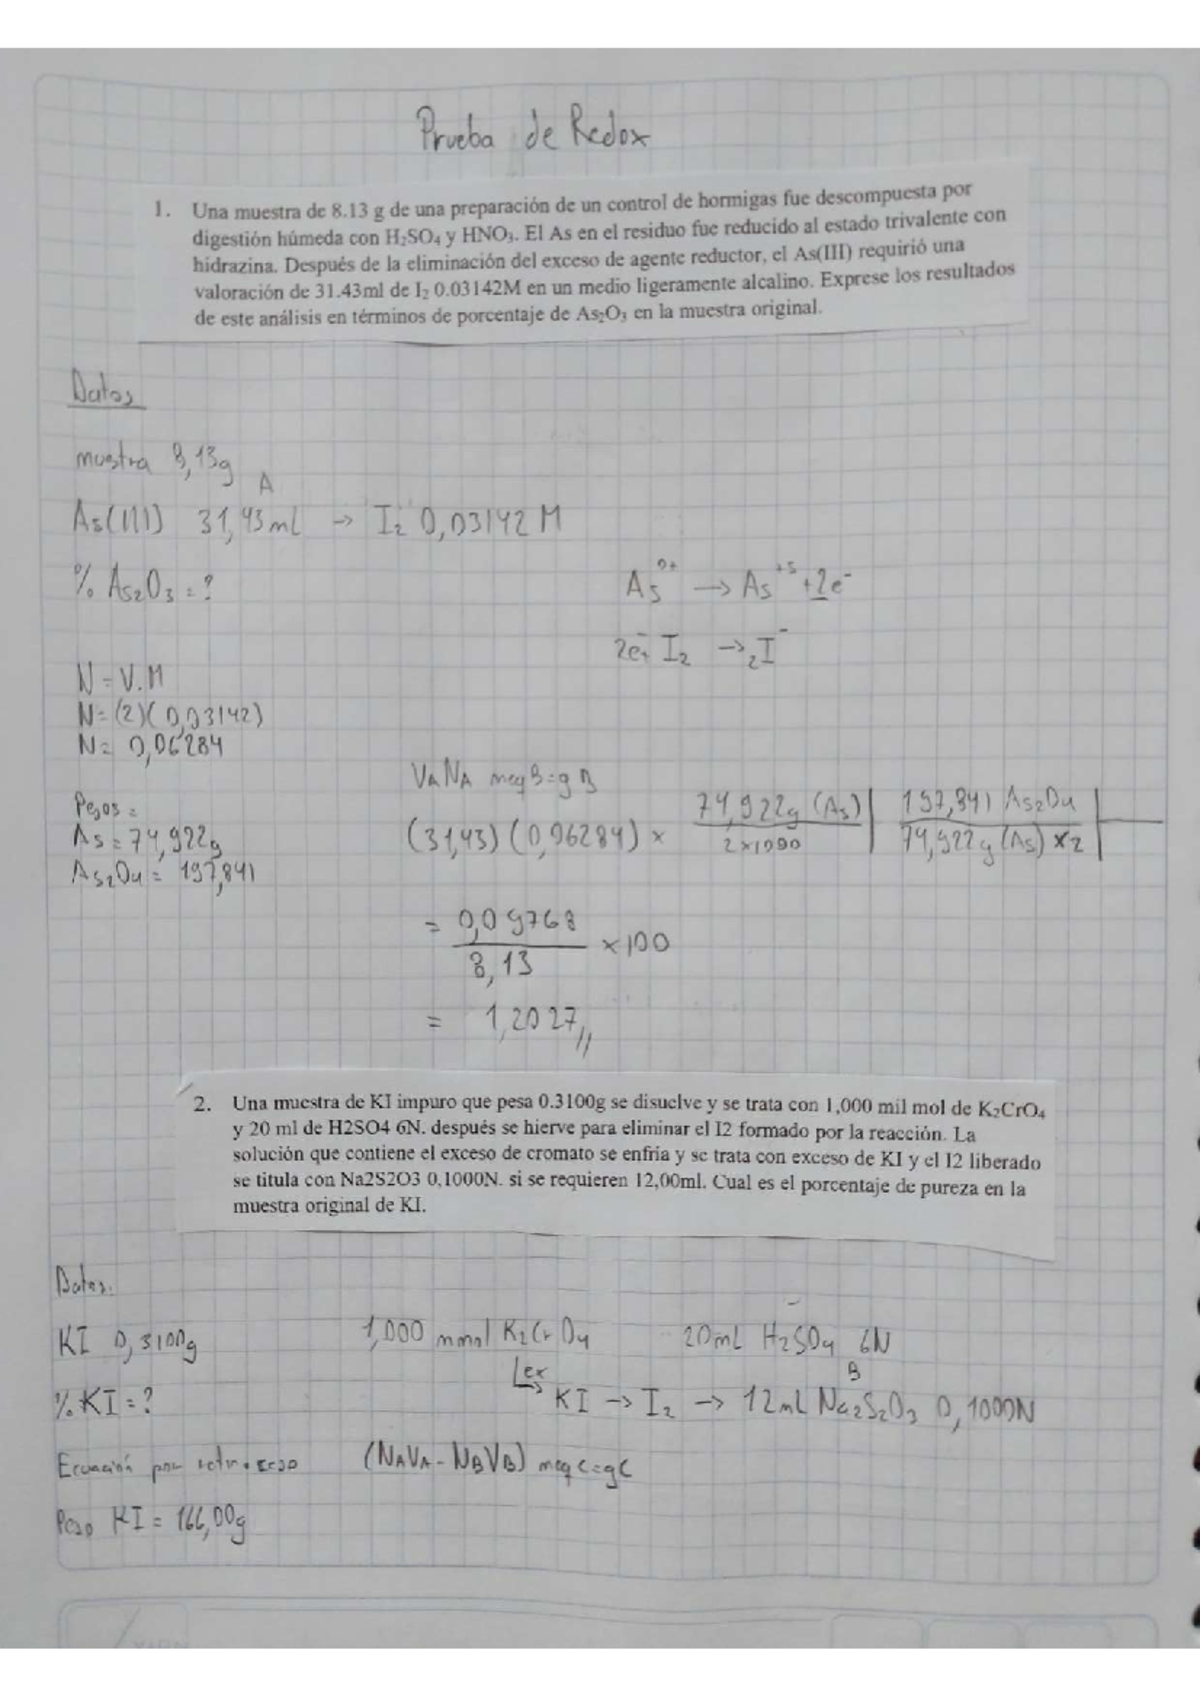 Prueba de Redox
1. Una muestra de 8.13 g de una preparación de un control de hormigas fue descompuesta por
digestión húmeda con H₂SO₄ y HNO₃. El As en el residuo fue reducido al estado trivalente con
hidrazina. Después de la eliminación del exceso de agente reductor, el As(III) requirió una
valoración de 31.43ml de I₂ 0.03142M en un medio ligeramente alcalino. Exprese los resultados
de este análisis en términos de porcentaje de As₂O₃ en la muestra original.
Datos
muestra 8,13g
A
As(III) 31,43 mL → I₂ 0,03142 M
% As₂O₃ = ?
As → As⁺⁵ + 2e⁻
2e⁻ + I₂ → 2I⁻
N = V.M
N = (2)(0,03142)
N = 0,06284
VA NA meq B = g B
Pesos =
As = 74,922g
As₂O4 = 197,841
(31,43) (0,06284) × 74,922g (As) / 2×1000 | 197,841 As₂O4 / 74,922g (As) × 2
= 0,09768 / 8,13 × 100
= 1,2027 //
2. Una muestra de KI impuro que pesa 0.3100g se disuelve y se trata con 1,000 mil mol de K₂CrO₄
y 20 ml de H2SO4 6N. después se hierve para eliminar el I2 formado por la reacción. La
solución que contiene el exceso de cromato se enfria y se trata con exceso de KI y el I2 liberado
se titula con Na2S2O3 0,1000N. si se requieren 12,00ml. Cual es el porcentaje de pureza en la
muestra original de KI.
Datos.
KI 0,3100g 1,000 mmol K₂CrO4 20mL H₂SO4 6N
B
% KI = ? ex → KI → I₂ → 12mL Na₂S₂O₃ 0,1000N
Ecuación por (NAVA - NBVB) meq C = gC
Peso KI = 166,00g